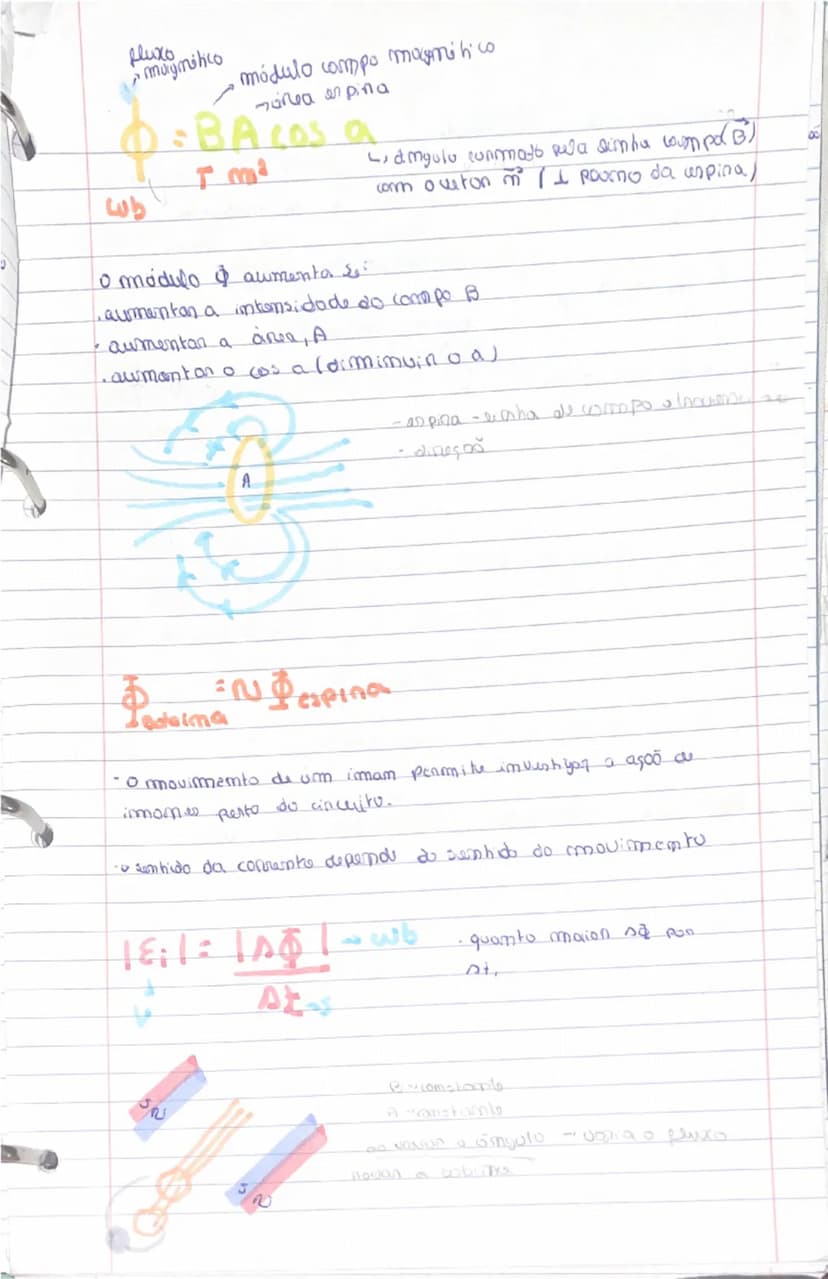 fluxo
magnético
módulo campo magnético
área espira
Φ = BA cos a
T m²
Wb
ângulo formado pela linha campo (B⃗)
com o vetor n⃗ (⊥ plano da espira)
O módulo Φ aumenta se:
. aumentar a intensidade do campo B
· aumentar a área, A
. aumentar o cos a (diminuir o a)
- espira - linha de campo
- direção
A
Φbobina = N Φespira
· O movimento de um iman permite investigar a ação de
imanes perto do circuito.
· o sentido da corrente depende do sentido do movimento
|εi| = |ΔΦ| → wb
Δt → s
. quanto maior ΔΦ por
Δt,
B - constante
A - constante
ao variar o ângulo - varia o fluxo
S N
S N